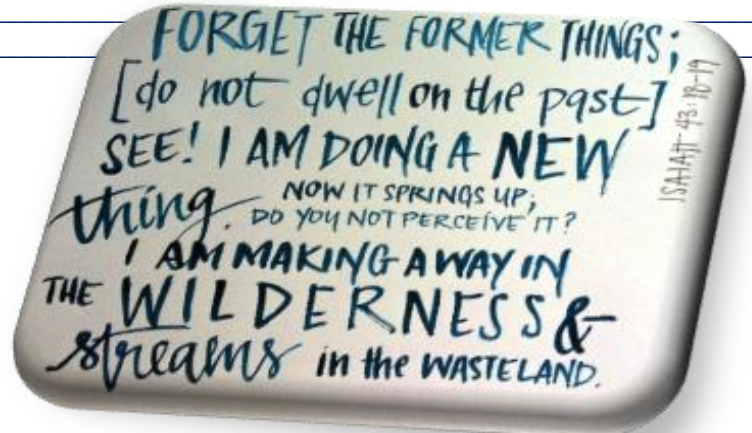 FORGET THE FORMER THINGS;
[do not dwell on the past]
SEE! I AM DOING A NEW
thing. NOW IT SPRINGS UP;
DO YOU NOT PERCEIVE IT?
I AM MAKING A WAY IN
THE WILDERNESS &
streams in the WASTELAND.
ISAIAH 43:18-19